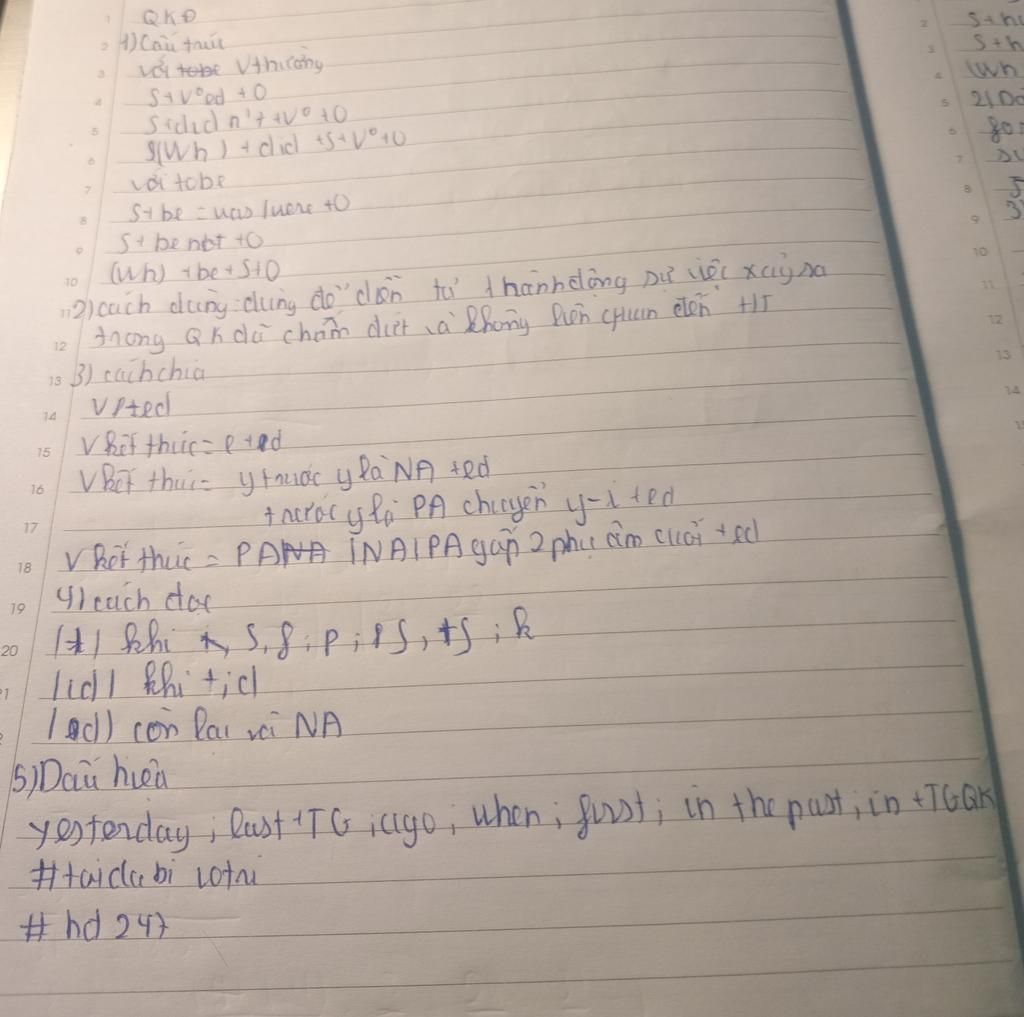 QKĐ
1) Cấu trúc
với tobe Vthường
S+V⁰ed +O
S+didn't +V⁰ +O
(Wh) + did +S+V⁰+O
với tobe
S+be = was/were +O
S+be not +O
(Wh) +be+S+O
2) cách dùng: dùng để diễn tử hành động sự việc xảy ra
trong QK đã chấm dứt và không liên quan đến HT
3) cách chia
V/+ed
V kết thúc = e +ed
V kết thúc = y trước y là NA +ed
trước y là PA chuyển y-i +ed
V kết thúc = PANA 1NA1PA gấp 2 phụ âm cuối +ed
4) cách đọc
/t/ khi s, f; p; ʃ, tʃ; k
/id/ khi t; d
còn lại và NA
5) Dấu hiệu
yesterday; last +TG; ago; when; first; in the past; in +TGQK
#taida bi
#hd 247
2
S+h
S+h
Wh
2)